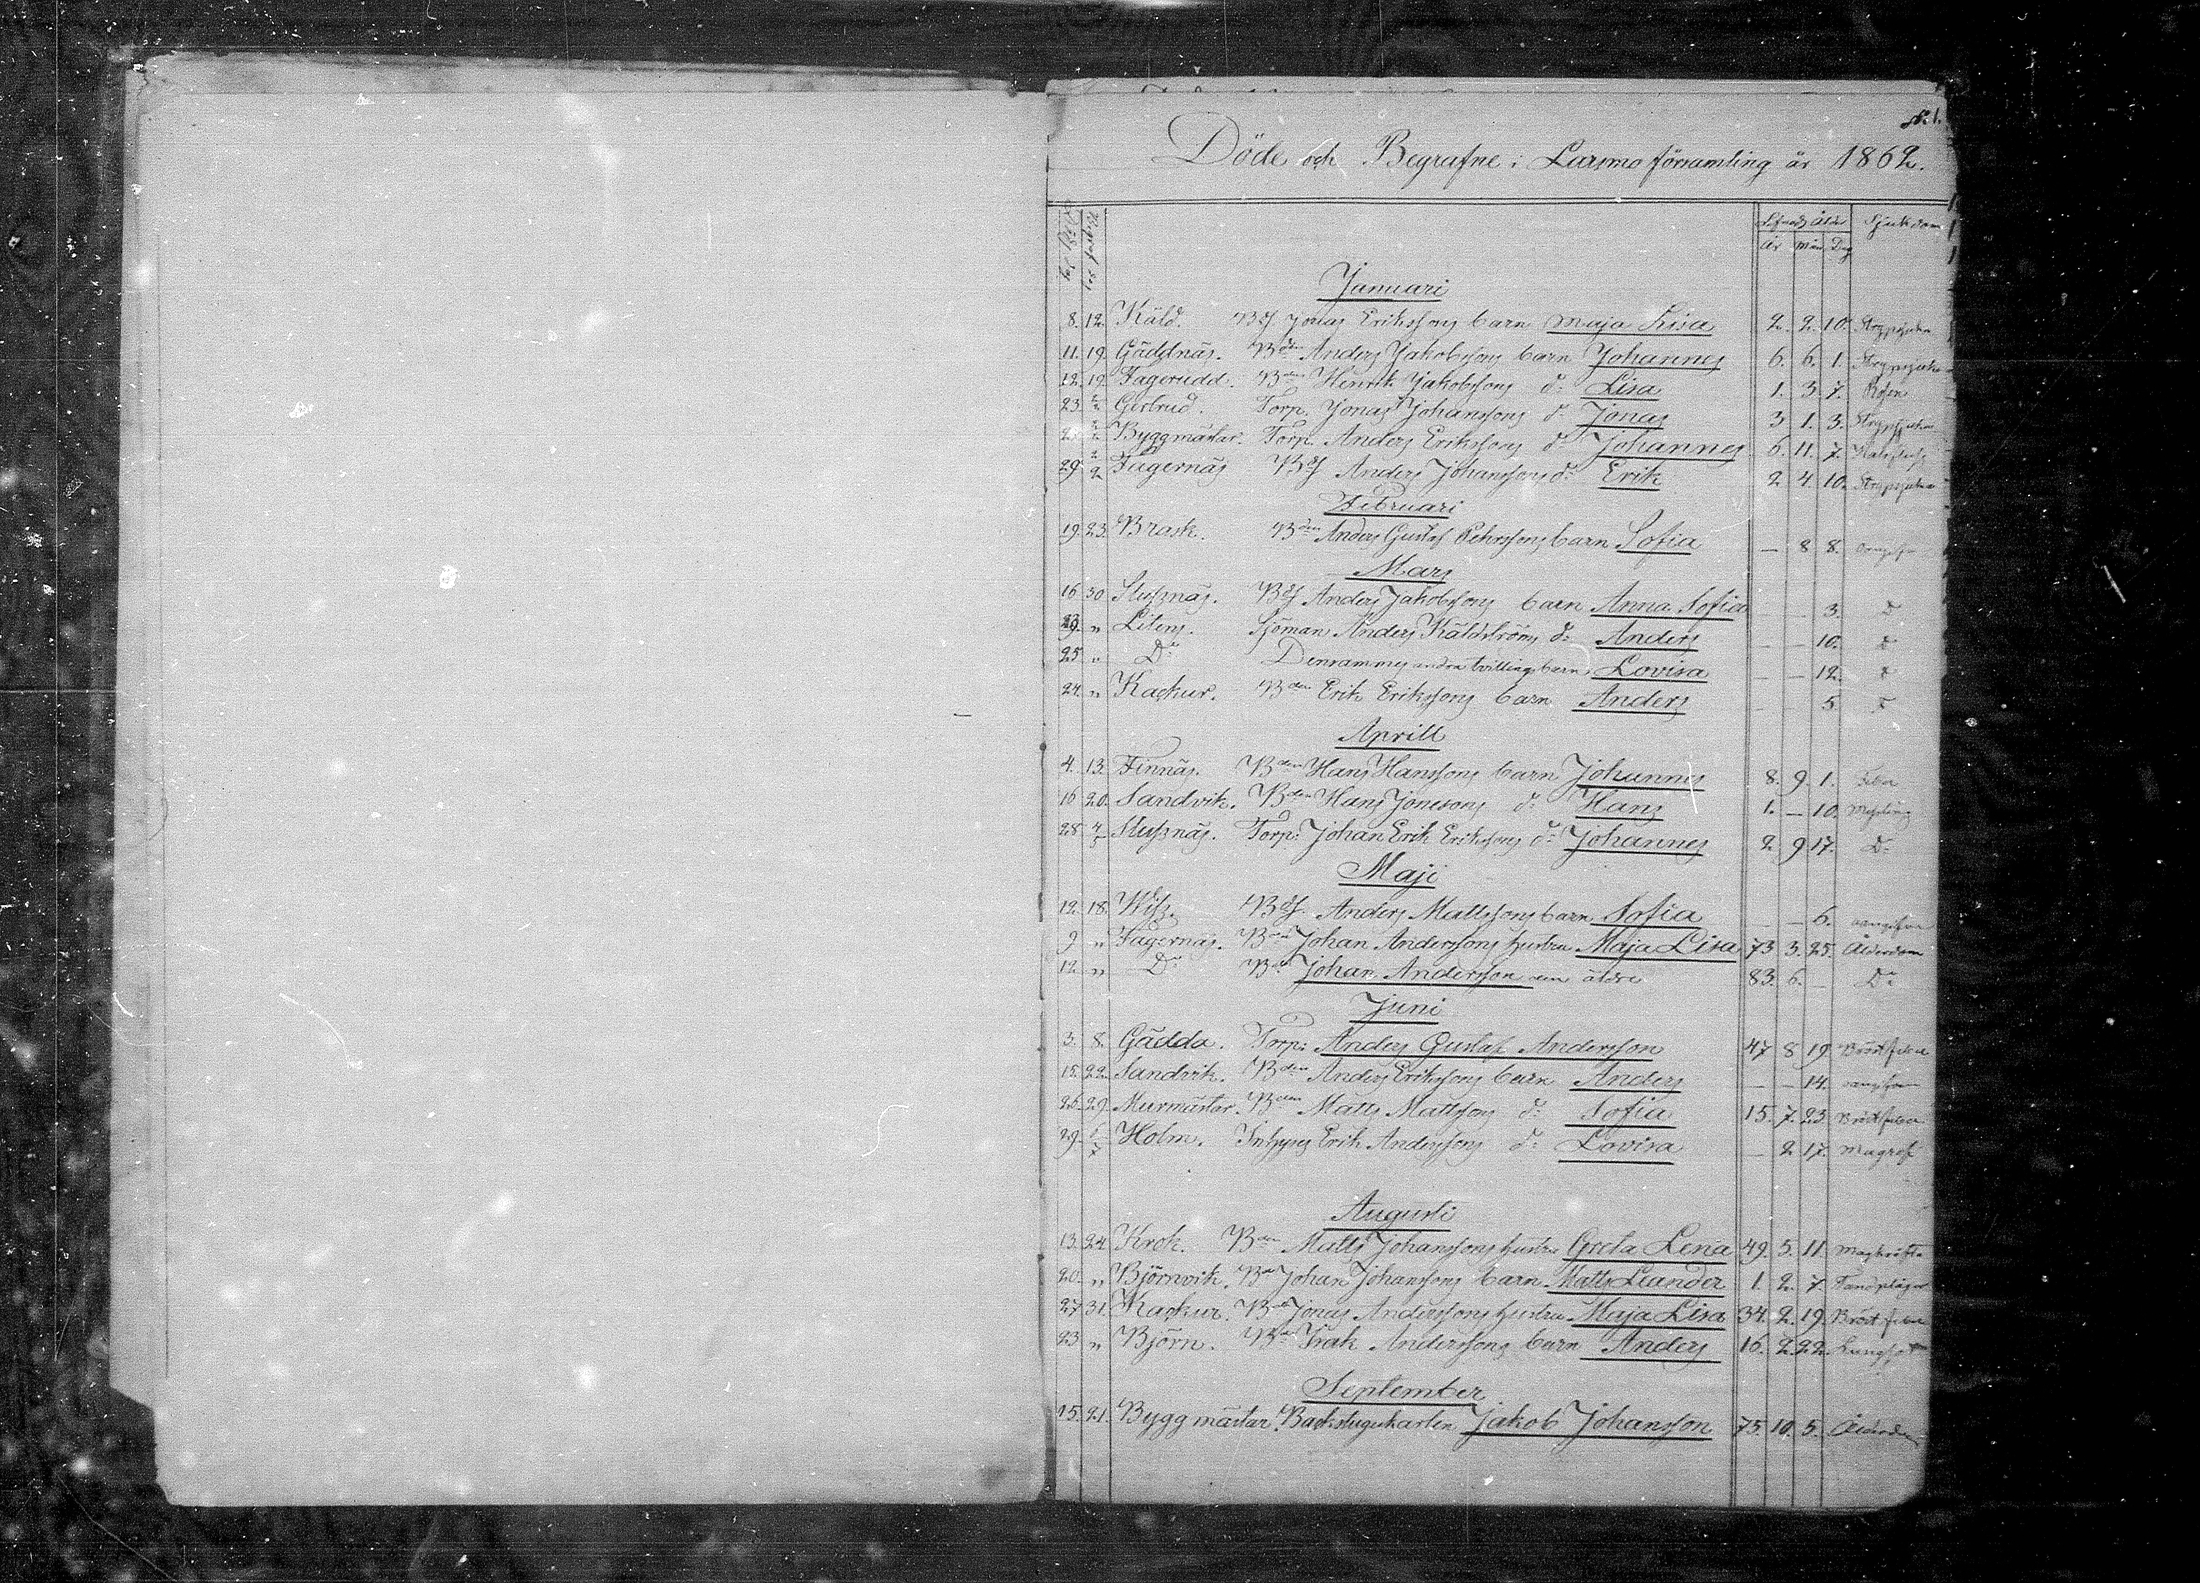 N:1.
Döde och Begrafne i Larsmo församling år 1862.
Lefnads ålder Sjukdom
år mån Dag
Januari
8. 12. Käld. Bdsf Jonas Erikssons barn Maja Lisa 2. 2. 10. Strypsjuka
11. 19. Gäddnäs. Bden Anders Jakobssons barn Johannes 6. 6. 1. Strypsjuka
12. 19. Fagerudd. Bden Henrik Jakobssons d:o Lisa 1. 3. 7. Rosen
23. 2/2 Gertrud. Torp. Jonas Johanssons d:o Jonas 3 1. 3. Strypsjuka
2/2 Byggmästar. Torp. Anders Erikssons d:o Johannes 6. 11. 7.
29. 2/2 Fagernäs Bdsf Anders Johanssons d:o Erik 2 4 10. Strypsjuka
Februari
19. 23. Brask. Bden Anders Gustaf Pehrssons barn Sofia — 8 8. oangifven
Mars
16 30 Slussnäs. Bdsf Anders Jakobssons barn Anna Sofia 3. D:o
„ Litens. Sjöman Anders Käldströms d:o Anders — — 10. D:o
25 „ D:o Densammes andra tvillingbarn Lovisa — — 12. D:o
24. „ Kackur. Bden Erik Erikssons barn Anders — — 5. D:o
Aprill
4. 13. Finnäs. Bden Hans Hanssons barn Johannes 8. 9. 1. Feber
16 20. Sandvik. Bden Hans Jonssons d:o Hans 1. — 10. Messling
28. 4/5 Slussnäs. Torp: Johan Erik Erikssons d:o Johannes 2 9 17. D:o
Maji
12. 18. Wiss. Bdsf. Anders Mattssons barn Sofia — — 6. oangifven
9 „ Fagernäs. Bden Johan Anderssons hustru Maja Lisa 73 3. 25. Ålderdom
12 „ D:o Bden Johan Andersson den äldre 83. 6. — D:o
Juni
3. 8. Gädda. Torp: Anders Gustaf Andersson 47 8 19. Bröstfeber
15. 22. Sandvik. Bden Anders Erikssons barn Anders — — 14. oangifven
26. 29. Murmästar. Bden Matts Mattssons d:o Sofia 15. 7. 23. Bröstfeber
29. 6/7 Holm. Inhyses Erik Anderssons d:o Lovisa — 2 17. Magref
Augusti
13. 24. Krok. Bden Matts Johanssons hustru Greta Lena 49. 5. 11. Magkräfta
20. „ Björnvik. Bden Johan Johanssons barn Matts Leander 1. 2. 7. Tandplågor
27 31. Kackur. Bden Jonas Anderssons hustru Maja Lisa 34. 2. 19. Bröst feber
23 „ Björn. Bden Isak Anderssons barn Anders 16. 2. 22. Lungsot
September
15. 21. Byggmästar. Backstugukarlen Jakob Johansson 75. 10. 5. Ålderdom